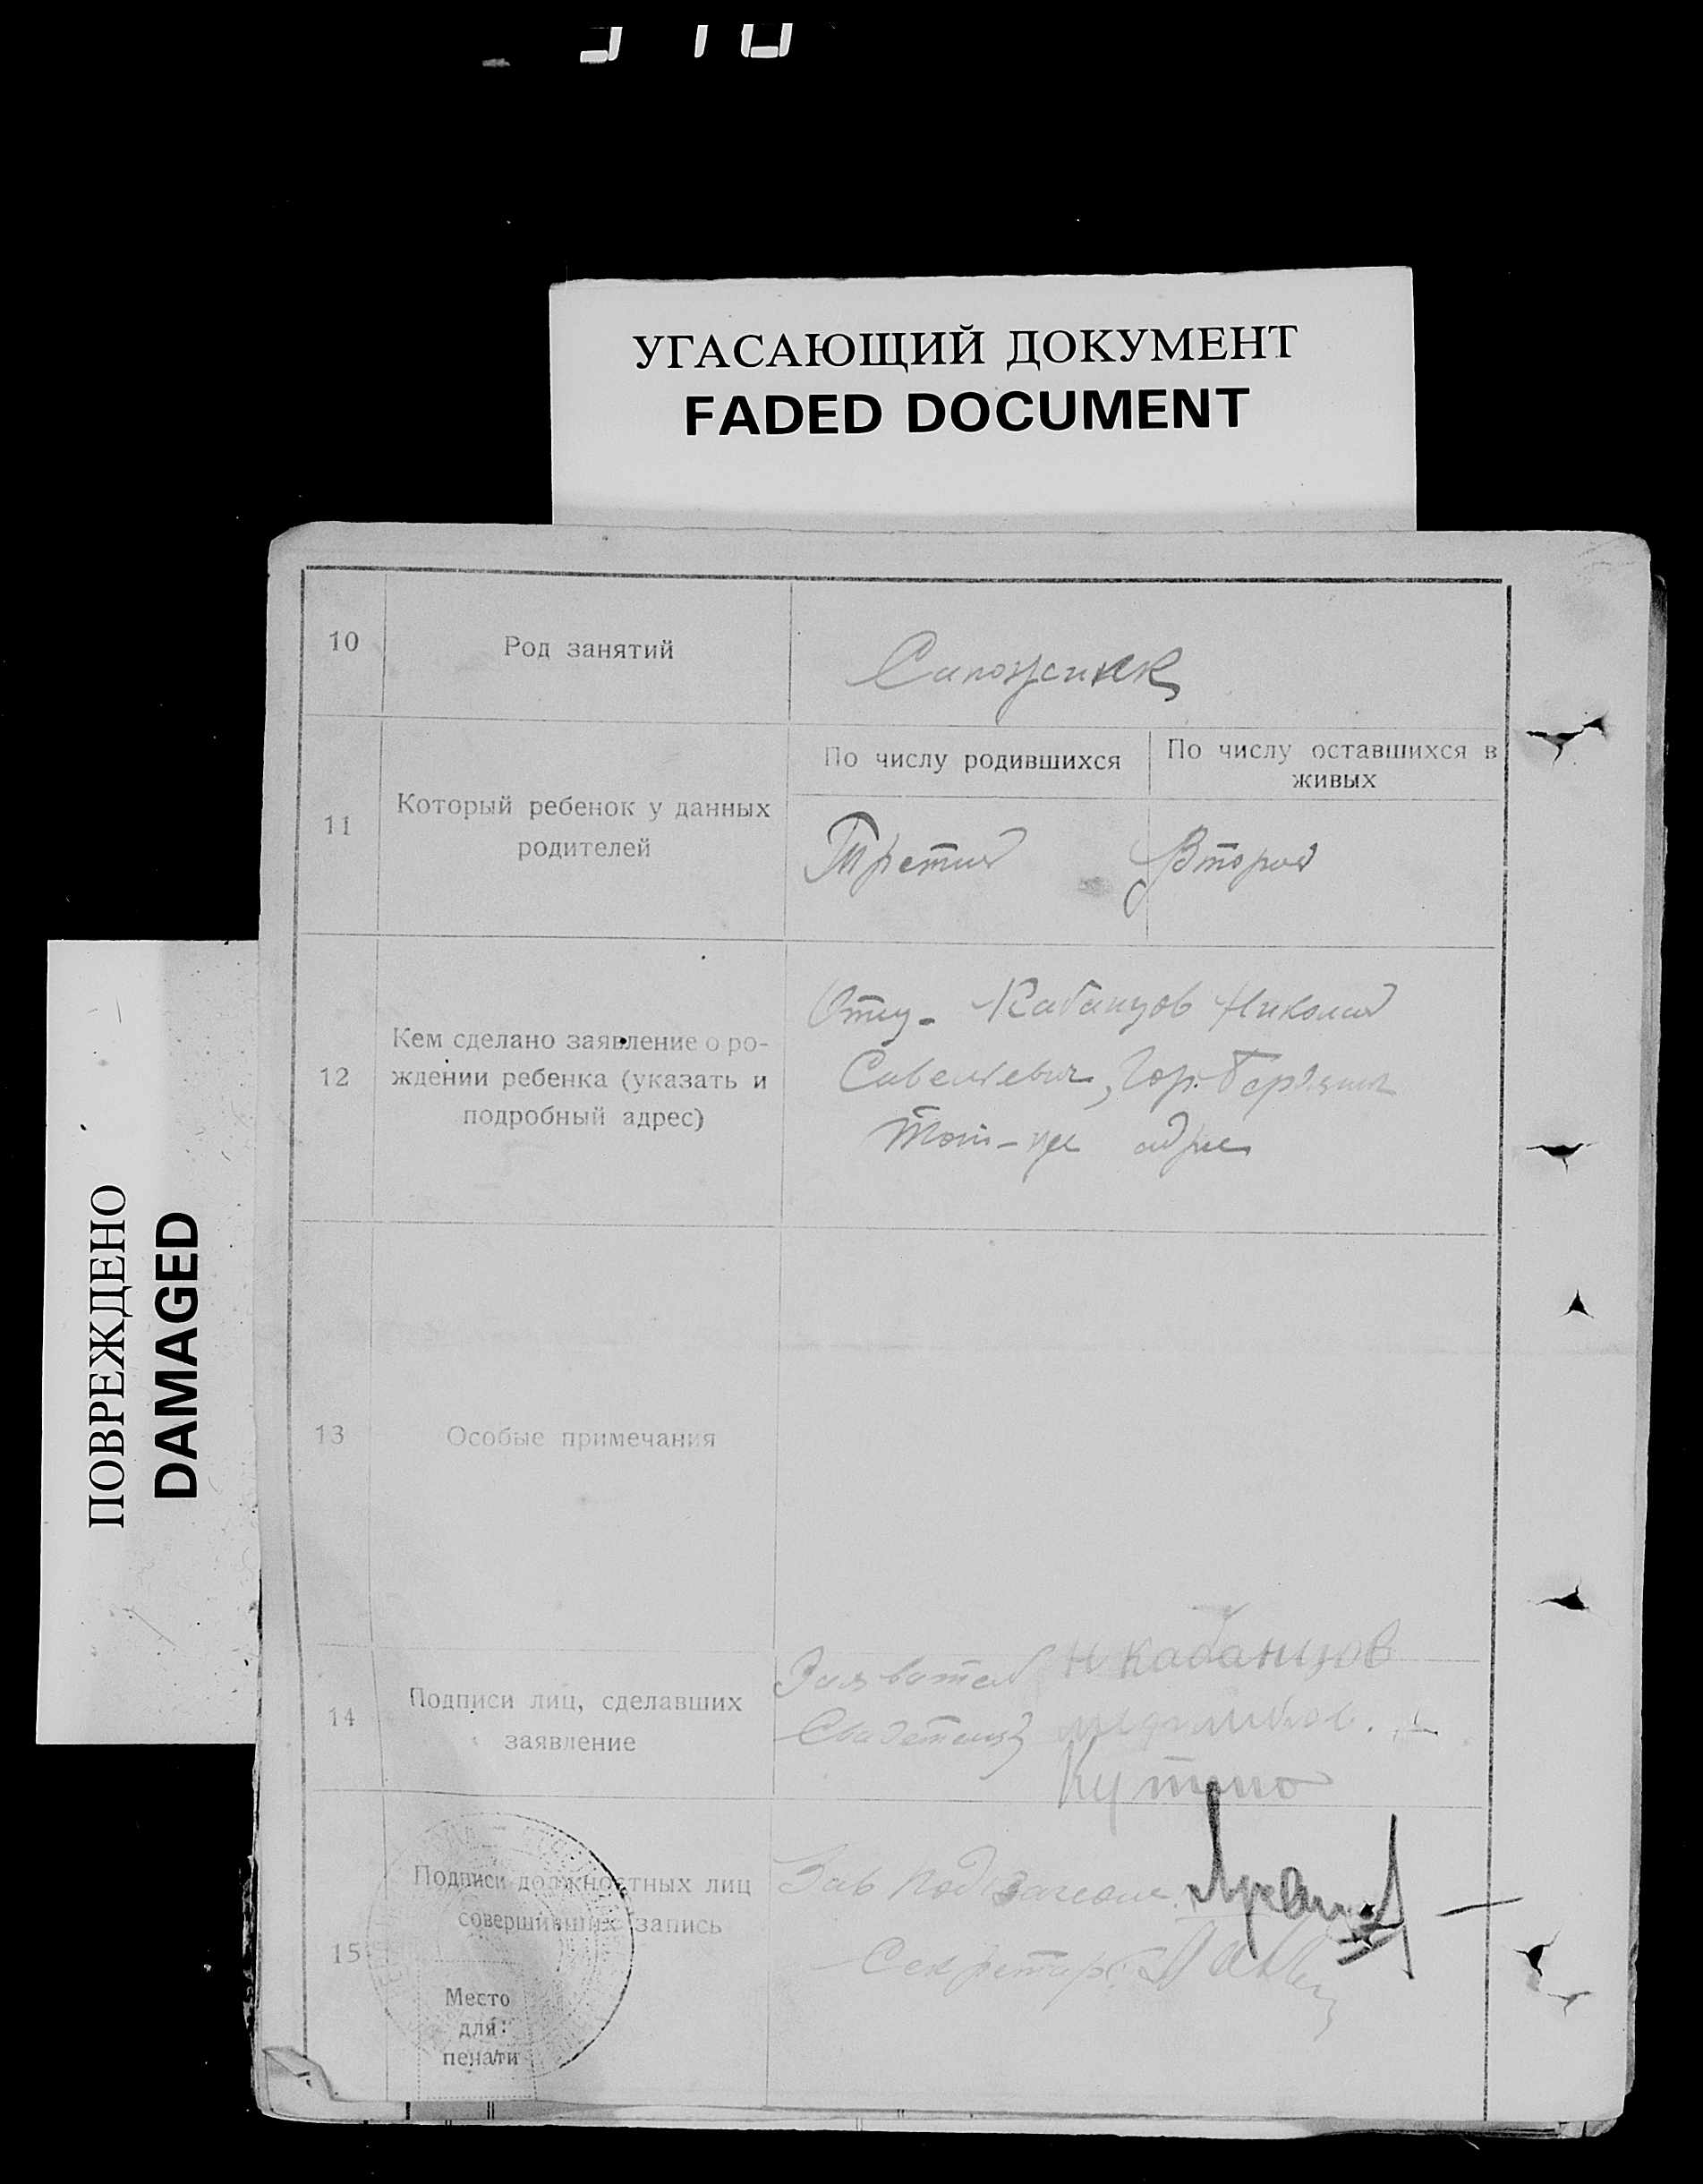 УГАСАЮЩИЙ ДОКУМЕНТ
FADED DOCUMENT
ПОВРЕЖДЕНО
DAMAGED
10
Род занятий
Сапожник
11
Который ребенок у данных
родителей
По числу родившихся
По числу оставшихся в
живых
Третий
Второй
12
Кем сделано заявление о ро-
ждении ребенка (указать и
подробный адрес)
Отец- Кабанцов Николай
Савельевич, Гор.
тот-же адрес
13
Особые примечания
14
Подписи лиц, сделавших
заявление
Заявител Н Кабанцов
Свидетели
15
Подписи должностных лиц
совершивших запись
Место
для
печати
Зав подзагсом
Секретарь